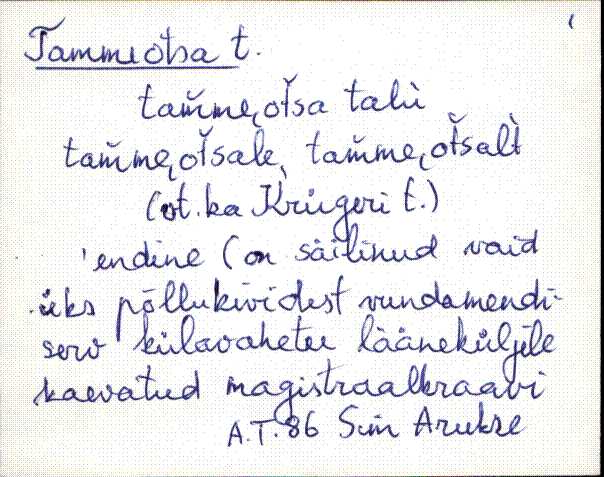 Tammeotsa t.
tam̆me‿ot̆sa talù
tam̆me‿ot̆sale, tam̆me‿ot̆salt̀
(vt. ka Krügeri t.)
'endine (on säilinud vaid
üks põllukividest vundamendi-
serv külavahetee lääneküljele
kaevatud magistraalkraavi
A.T. 86 Siim Arukse